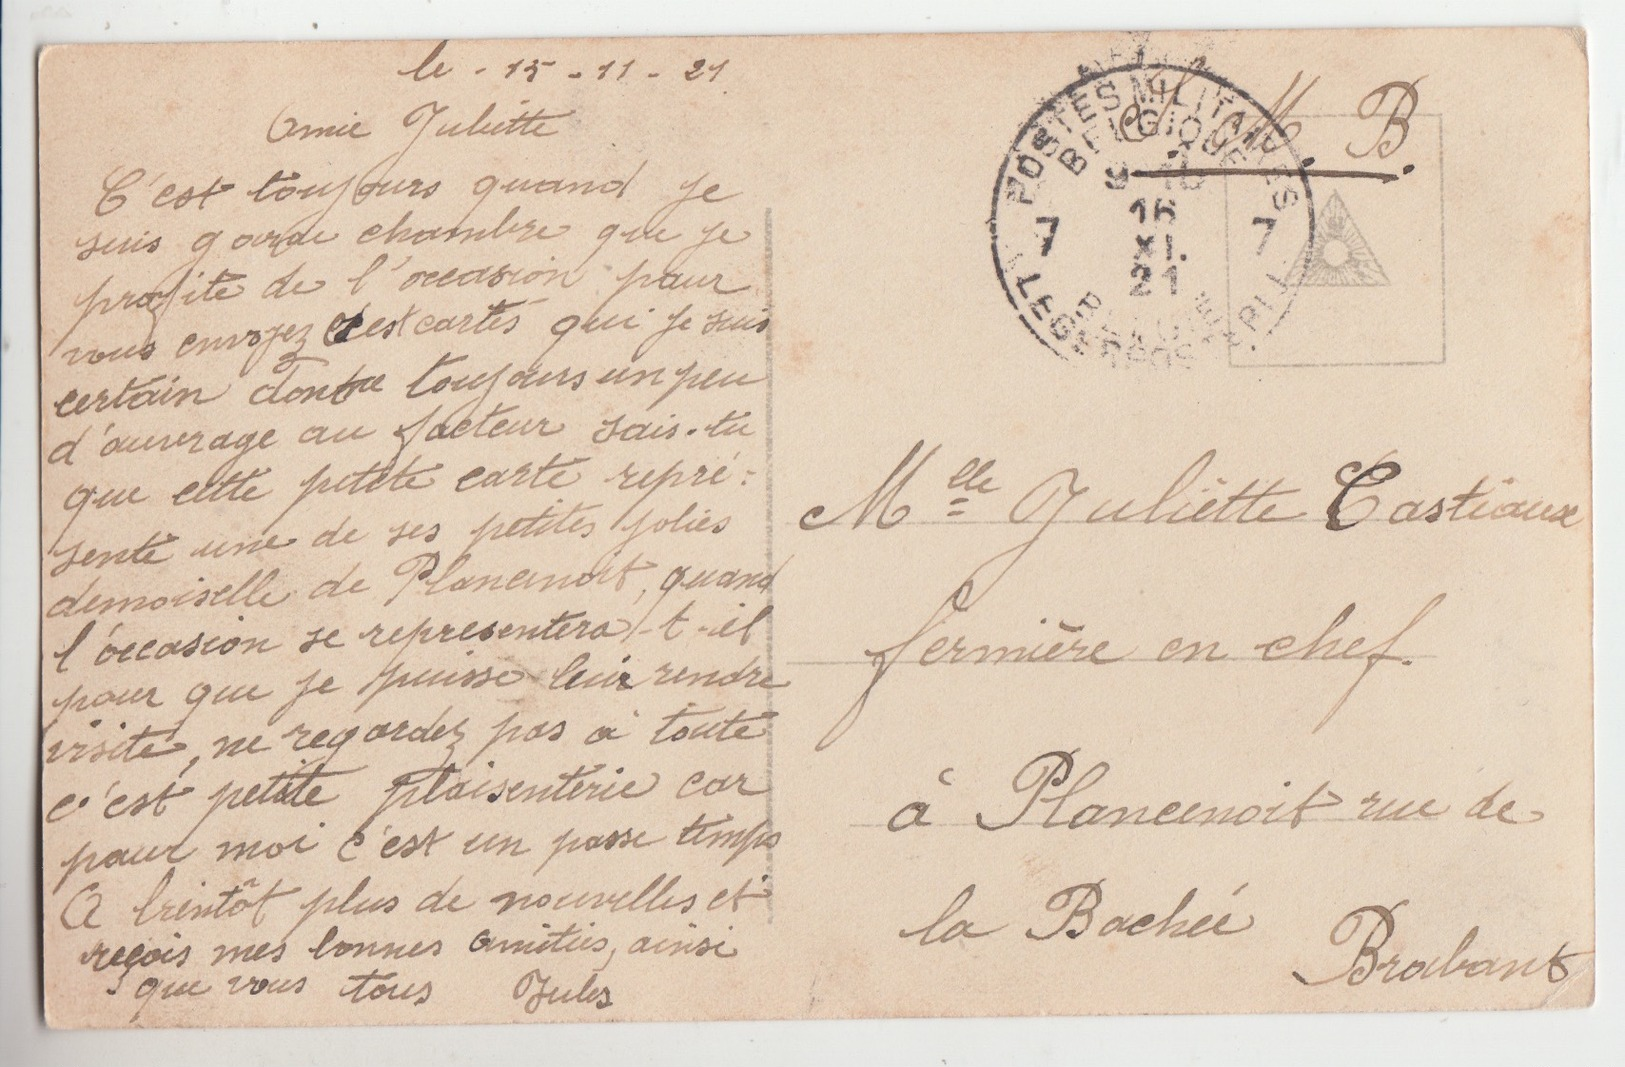 le - 15 - 11 - 21
Amie Juliette
C'est toujours quand je
suis garde chambre que je
profite de l'occasion pour
vous envoyez ces cartes qui je suis
certain donne toujours un peu
d'ouvrage au facteur sais-tu
que cette petite carte repré=
sente une de ses petites jolies
demoiselle de Plancenoit, quand
l'occasion se representera-t-il
pour que je puisse leur rendre
visite, ne regardez pas à toute
c'est petite plaisenterie car
pour moi c'est un passe temps
A bientôt plus de nouvelles et
reçois mes bonnes amitiés, ainsi
que vous tous Jules
S. M. B.
POSTES MILITAIRES
BELGIQUE
16
XI.
21
7 7
Melle Juliette Castiaux
fermière en chef.
à Plancenoit rue de
la Bachée
Brabant